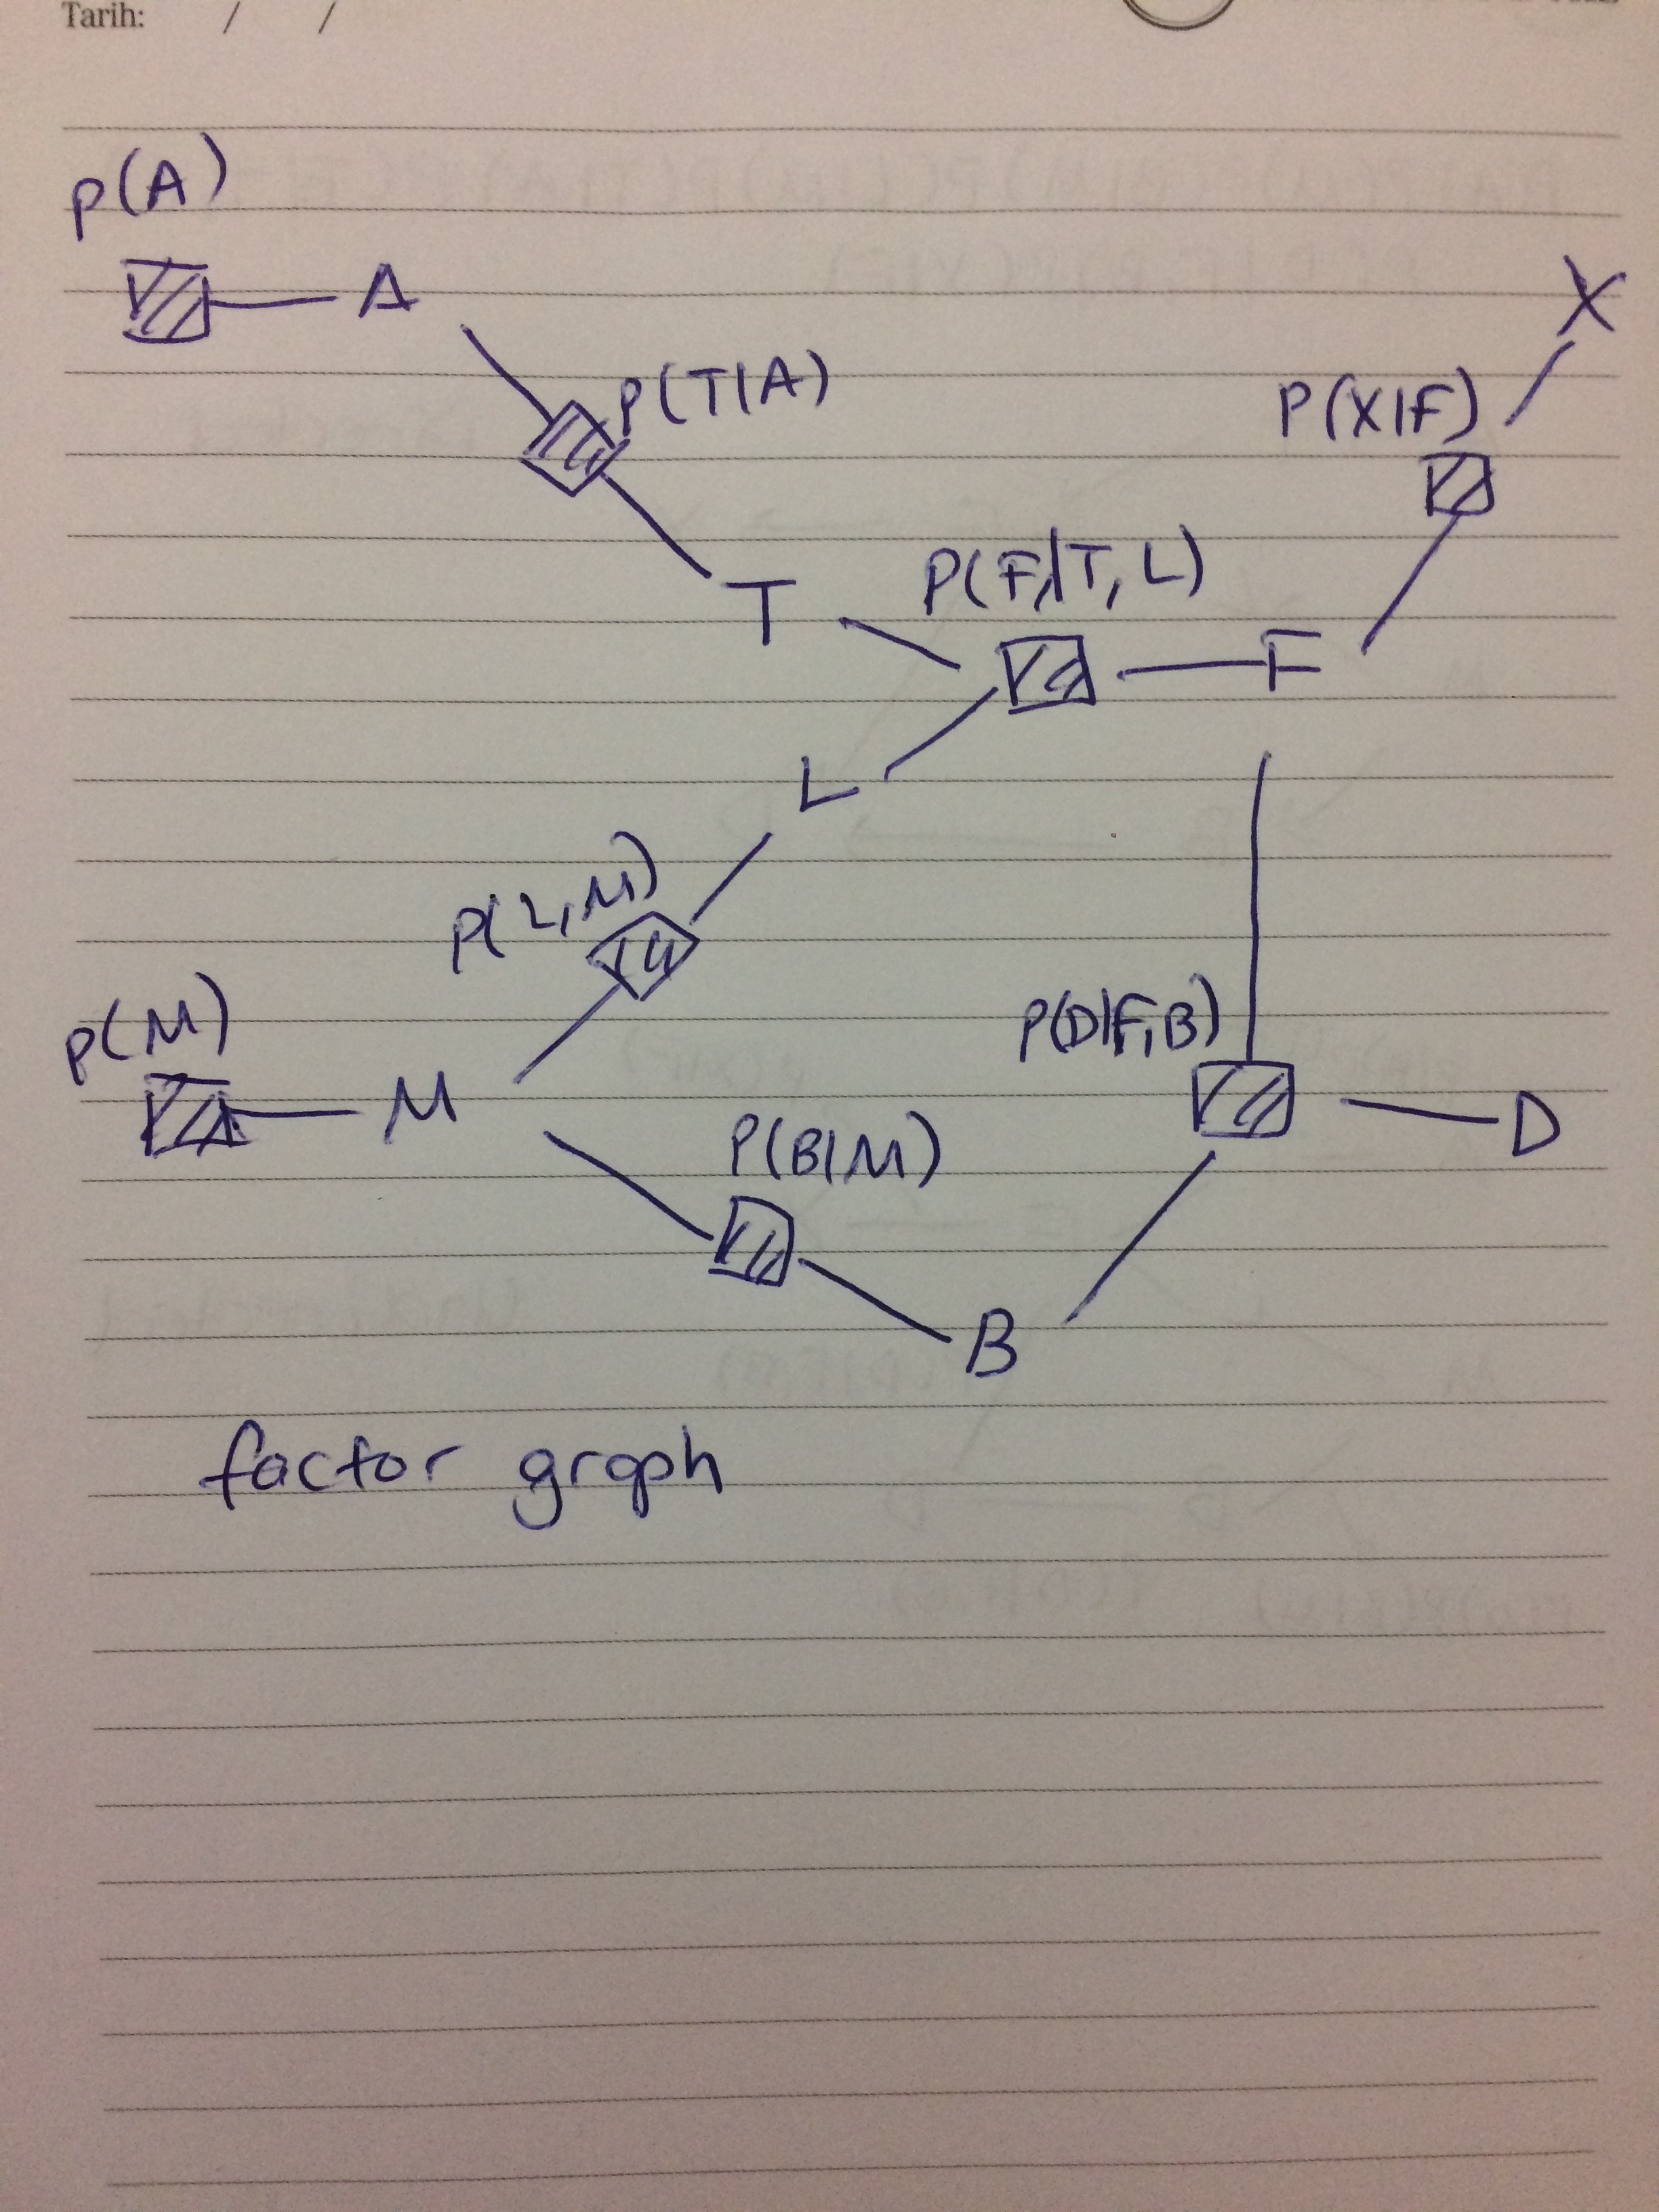 Tarih: / /
p(A)
A
X
P(T|A)
P(X|F)
P(F,|T, L)
T
F
L
P(L,M)
p(M)
P(D|F,B)
M
D
P(B|M)
B
factor graph